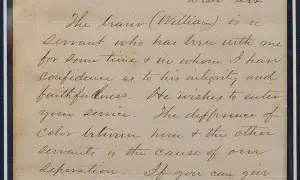 Dear Sir
The bearer (William) is a
servant who has been with me
for some time & in whom I have
confidence as to his integrity and
faithfulness. He wishes to enter
your service. The difference of
color between him & the other
servants is the cause of our
seperation. If you can give